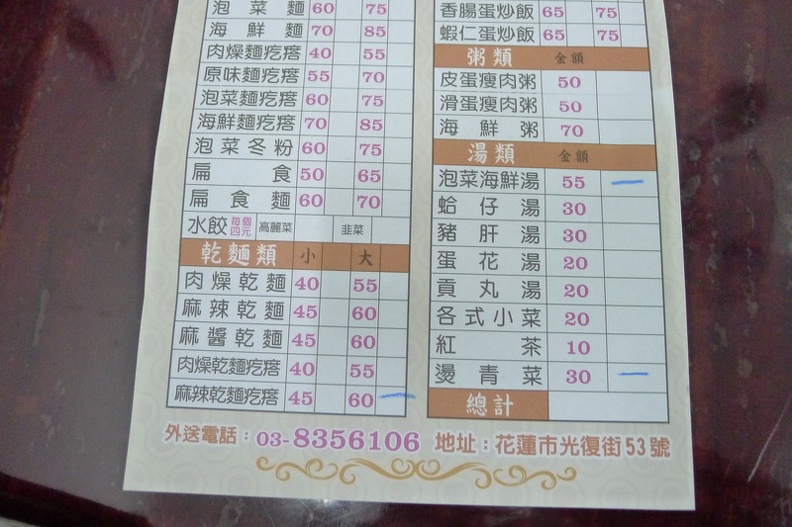 泡菜麵 60 75
海鮮麵 70 85
肉燥麵疙瘩 40 55
原味麵疙瘩 55 70
泡菜麵疙瘩 60 75
海鮮麵疙瘩 70 85
泡菜冬粉 60 75
扁食 50 65
扁食麵 60 70
水餃 每個四元 高麗菜 韭菜
乾麵類 小 大
肉燥乾麵 40 55
麻辣乾麵 45 60
麻醬乾麵 45 60
肉燥乾麵疙瘩 40 55
麻辣乾麵疙瘩 45 60
香腸蛋炒飯 65 75
蝦仁蛋炒飯 65 75
粥類 金額
皮蛋瘦肉粥 50
滑蛋瘦肉粥 50
海鮮粥 70
湯類 金額
泡菜海鮮湯 55
蛤仔湯 30
豬肝湯 30
蛋花湯 20
貢丸湯 20
各式小菜 20
紅茶 10
燙青菜 30
總計
外送電話：03-8356106 地址：花蓮市光復街53號